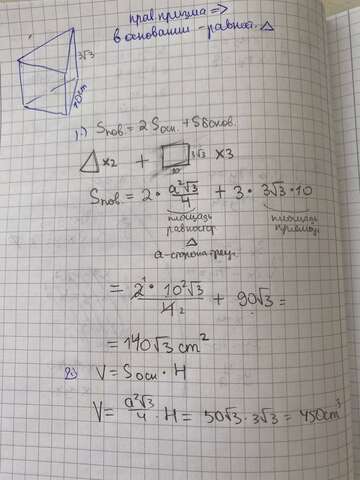 прав. призма =>
в основании - равност. △
3√3
10cm
1.) Sпов = 2 Sосн. + Sбоков.
△ x2 + 3√3 x3
10
Sпов = 2 · a²√3/4 + 3 · 3√3 · 10
площадь равностор △
площадь
a-сторона треуг.
= 2 · 10²√3/4 2 + 90√3 =
= 140√3 cm²
2.) V = Sосн · H
V = a²√3/4 · H = 50√3 · 3√3 = 450cm³